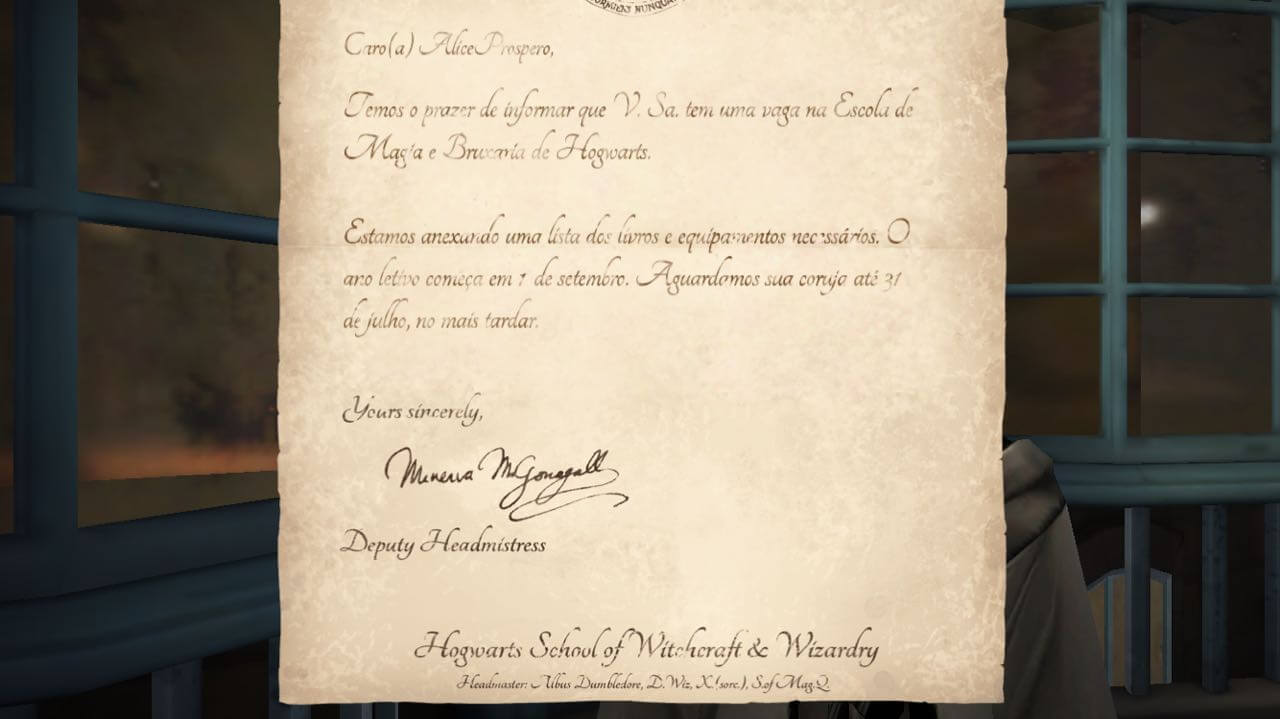 Caro(a) Alice Prospero,
Temos o prazer de informar que V. Sa. tem uma vaga na Escola de
Magia e Bruxaria de Hogwarts.
Estamos anexando uma lista dos livros e equipamentos necessários. O
ano letivo começa em 1 de setembro. Aguardamos sua coruja até 31
de julho, no mais tardar.
Yours sincerely,
Minerva McGonagall
Deputy Headmistress
Hogwarts School of Witchcraft & Wizardry
Headmaster: Albus Dumbledore, D.Wiz, X.(sorc.), S.of Mag.Q.